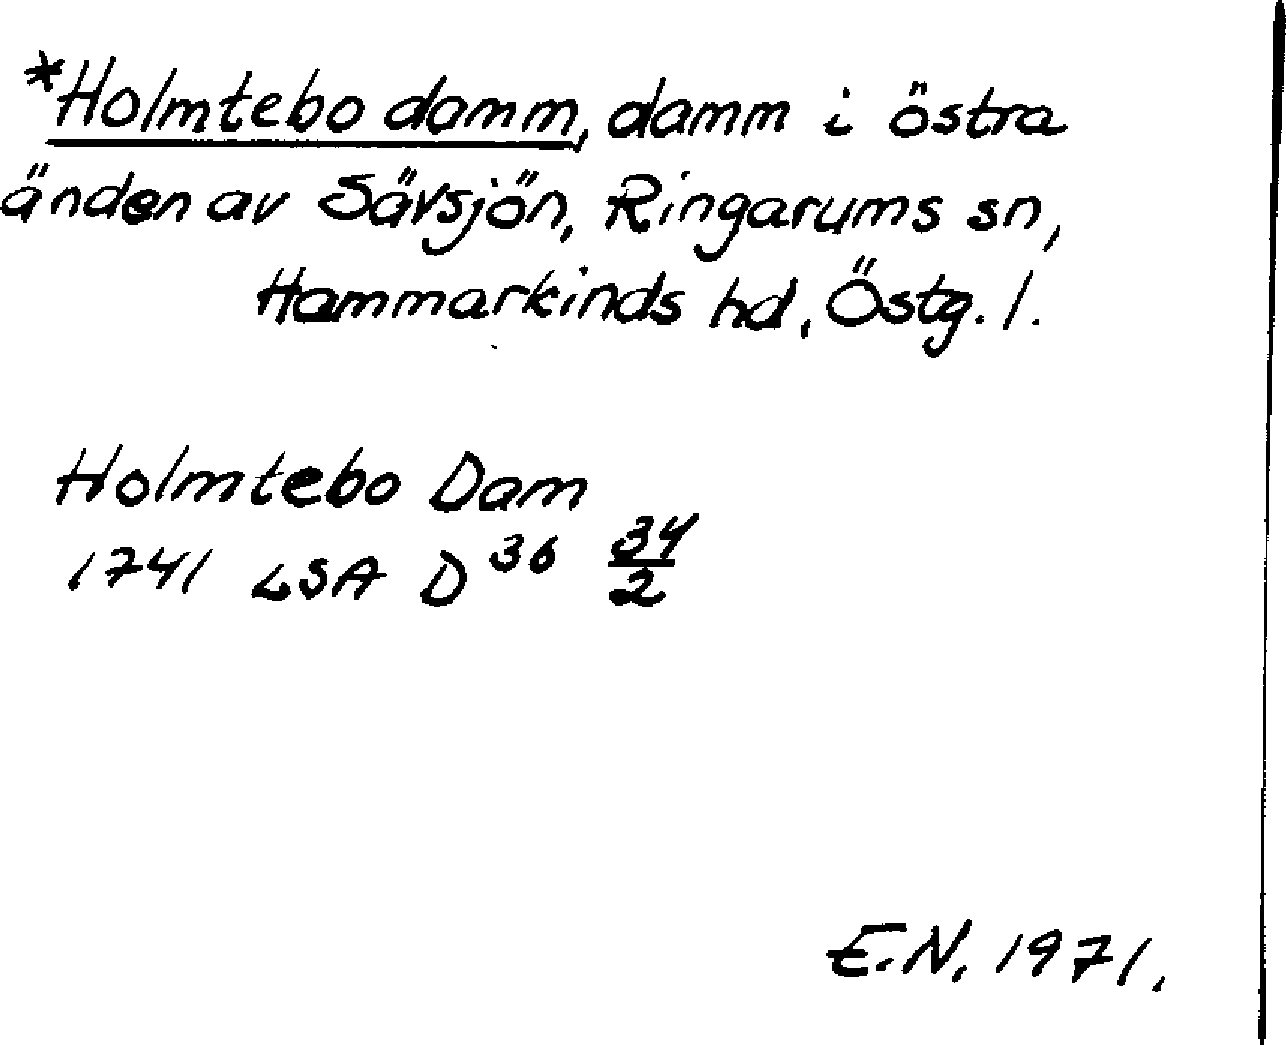 *Holmtebo damm, damm i östra
änden av Sävsjön, Ringarums sn,
Hammarkinds hd, Östg. l.
Holmtebo Dam
1741 LSA D 36 34/2
E.N. 1971.